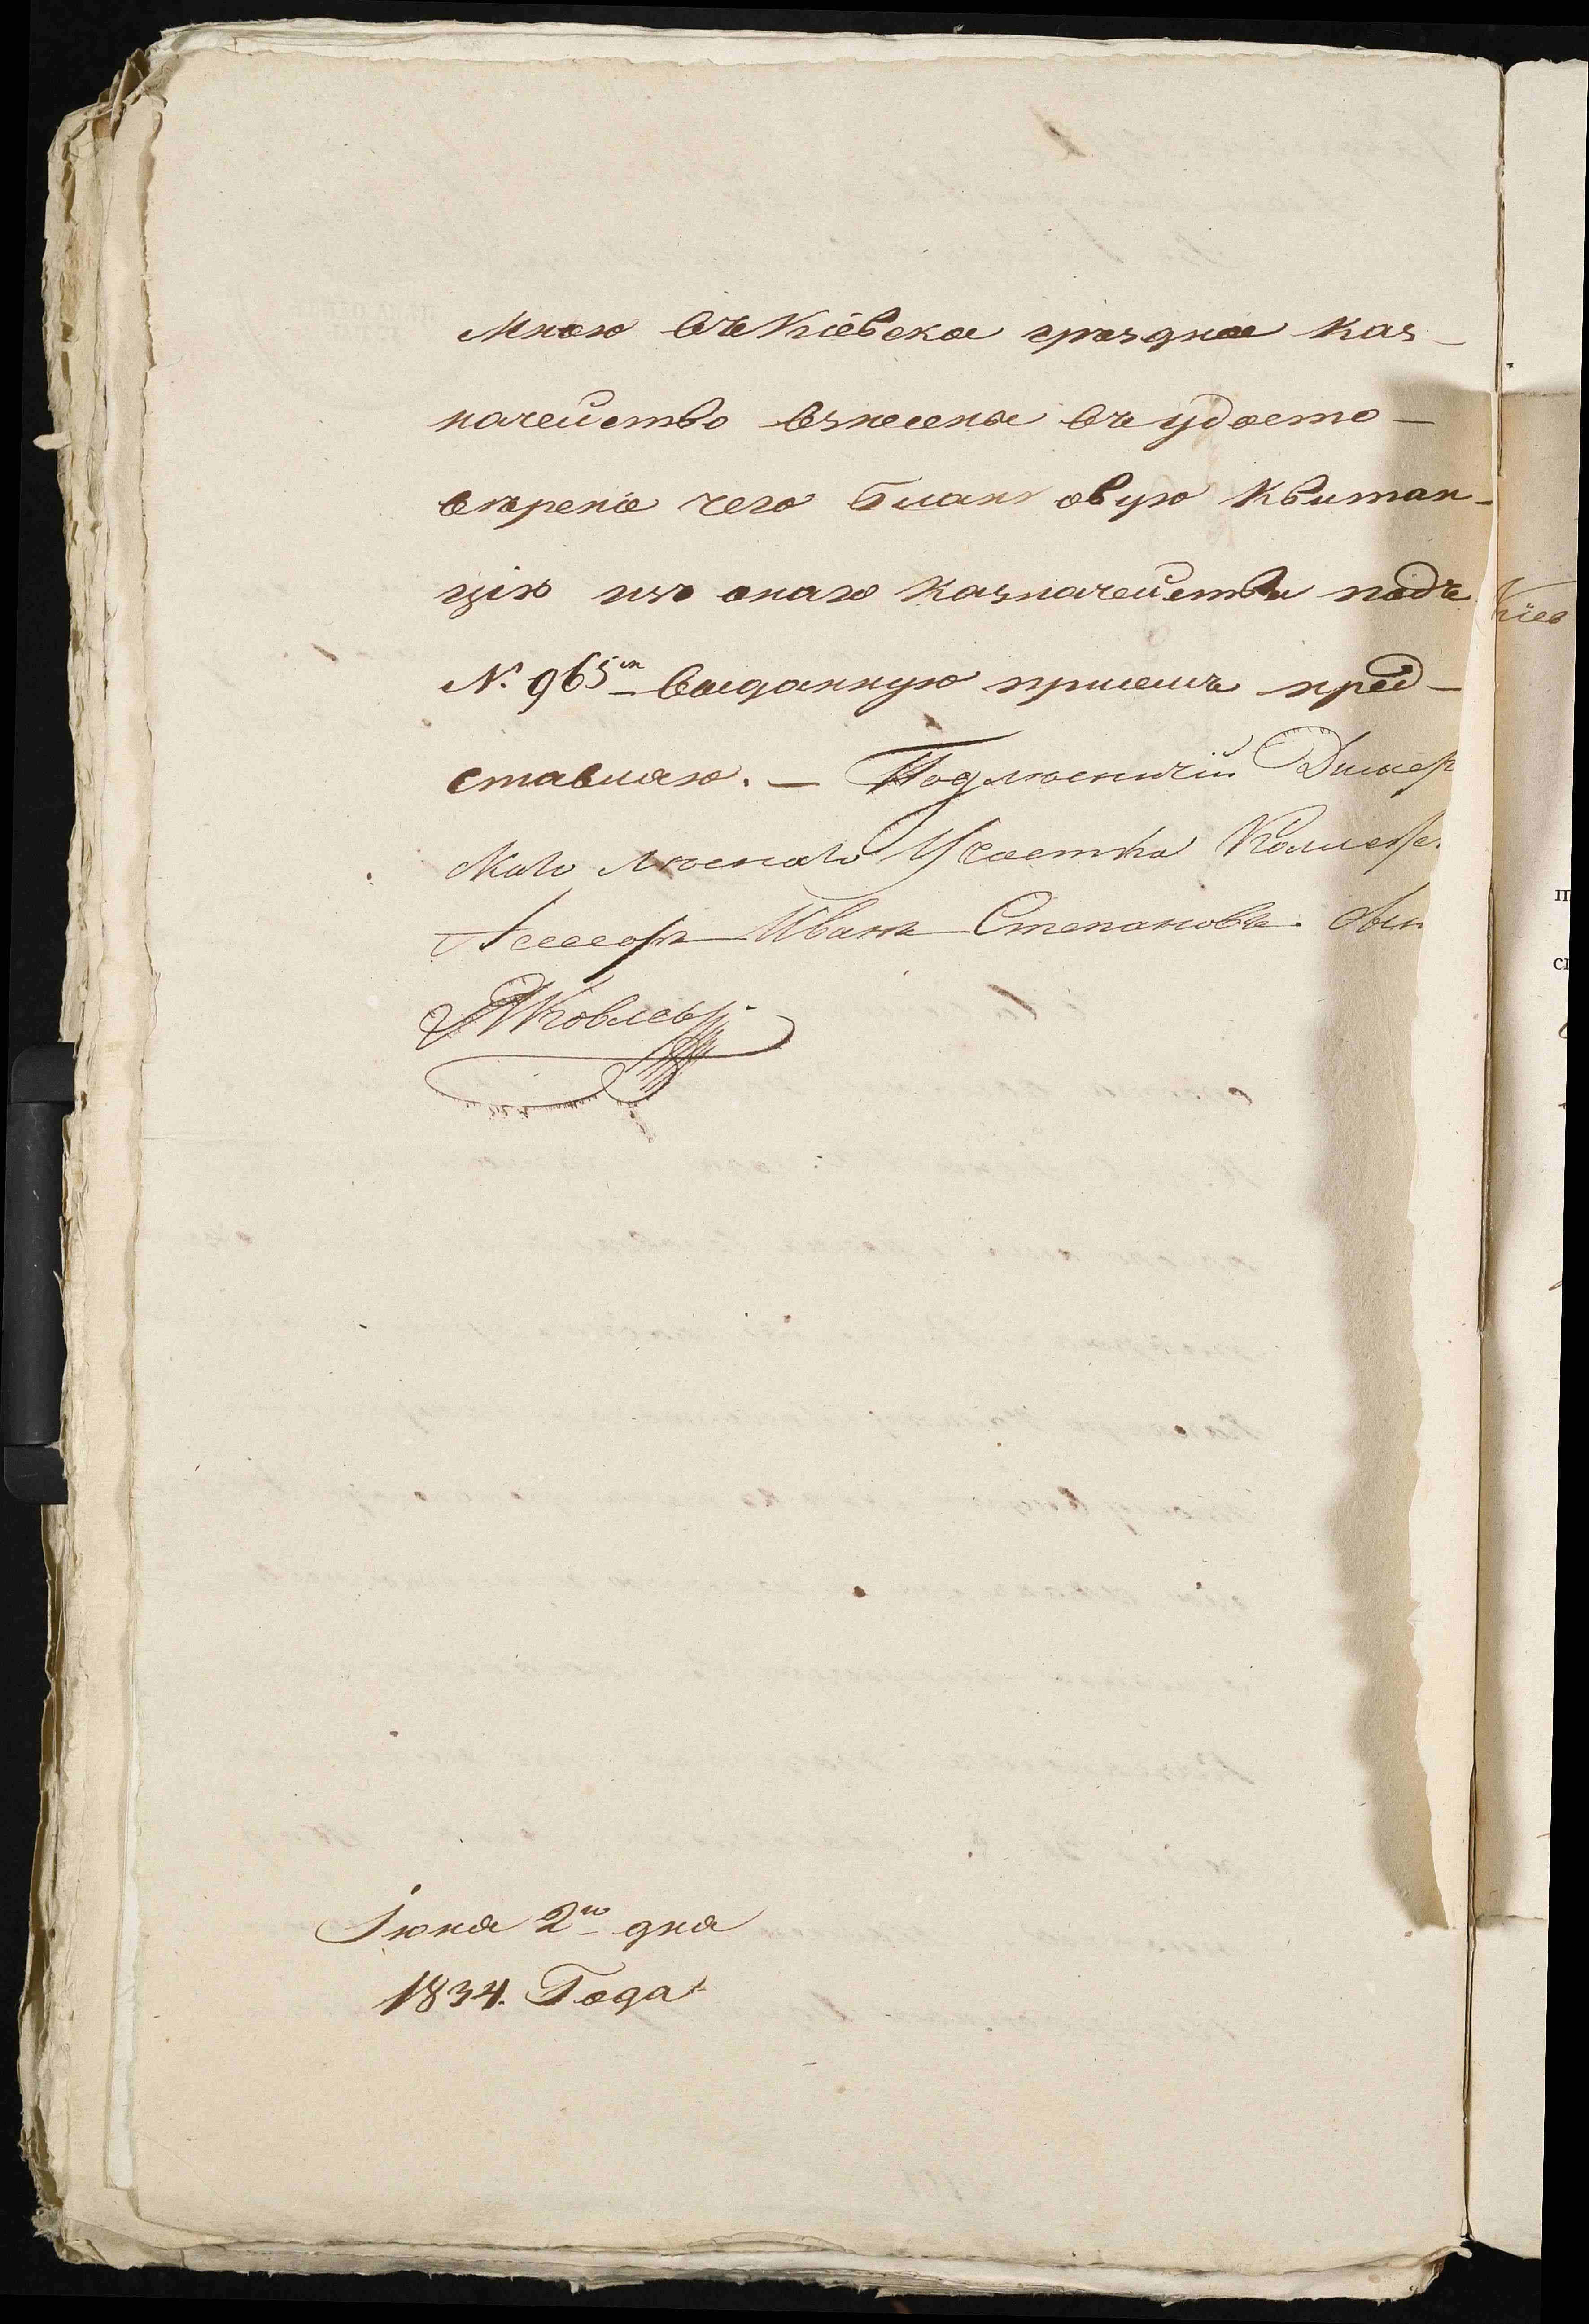 Мною въ Кіевское уѣздное каз-
начейство взнесены въ удосто-
вѣреніе чего бланковую квитан-
цію изъ онаго казначейства подъ
№. 965м выданную присемъ пред-
ставляю. — Подлюсничій Димер
скаго люснаго Участка Коллеж.
Ассесоръ Иванъ Степановъ. сын
Яковлевъ
Іюня 2го дня
1834. Года
Кіев